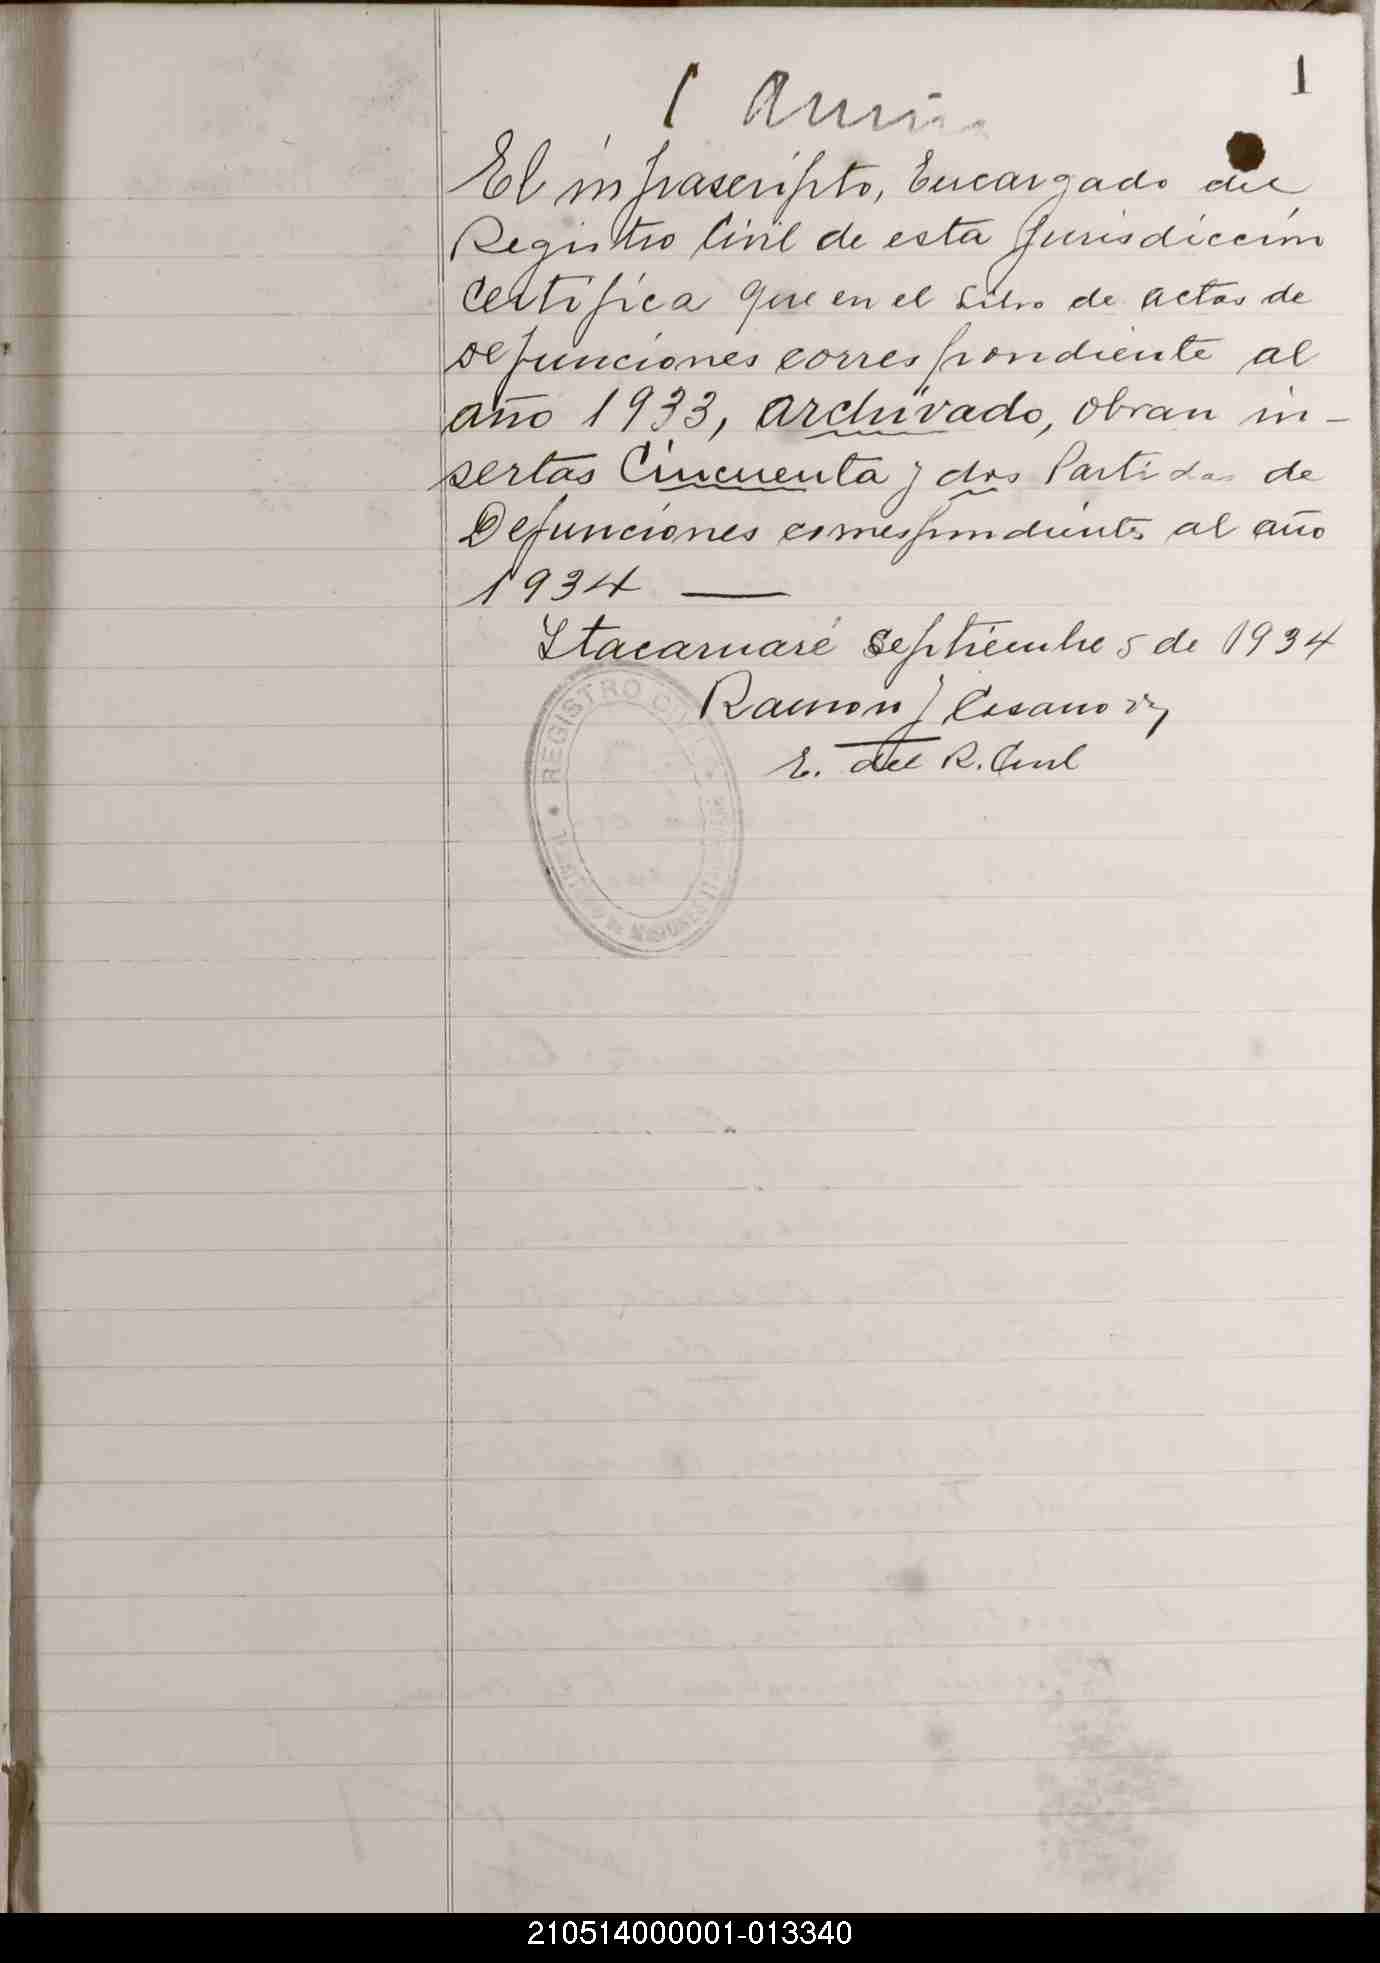 1
El infrascripto, Encargado del
Registro Civil de esta Jurisdicción
Certifica que en el Libro de actas de
defunciones correspondiente al
año 1933, archivado, obran in-
sertas Cincuenta y dos Partidas de
Defunciones correspondientes al año
1934 —
Itacaruaré Septiembre 5 de 1934
Ramon J Casanova
E. del R. Civil
REGISTRO CIVIL
DE MISIONES
210514000001-013340